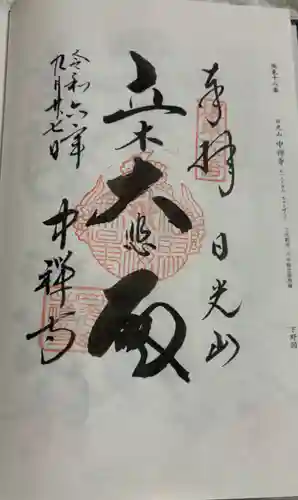 坂東十八番
日光山 中禅寺
下野国
奉拝 日光山
立木大悲殿
中禅寺
令和六年
九月廿七日